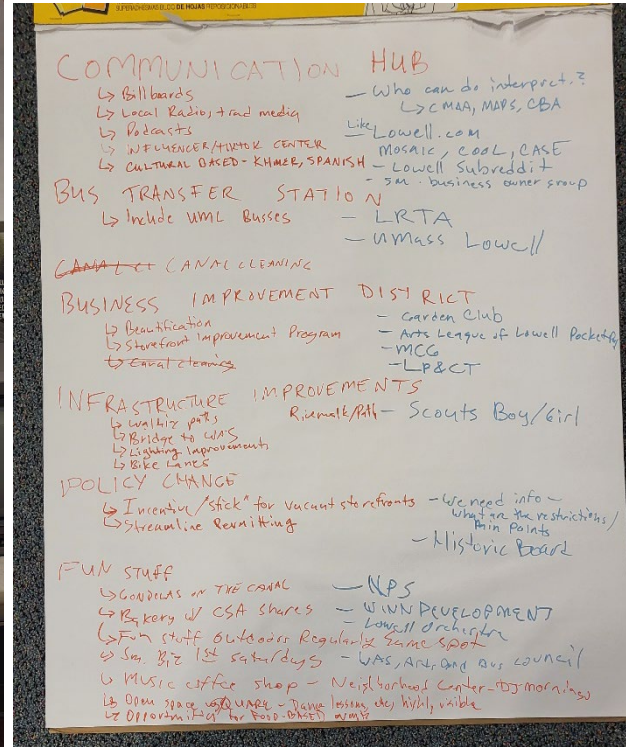 SUPERADHESIVAS BLOC DE HOJAS REPOSICIONABLES
COMMUNICATION HUB
↳ Billboards
↳ Local Radio, trad media
↳ Podcasts
↳ INFLUENCER/TIKTOK CENTER
↳ CULTURAL BASED - KHMER, SPANISH
— Who can do interpret.?
↳ CMAA, MAPS, CBA
Like Lowell.com
MOSAIC, COOL, CASE
— Lowell Subreddit
- sm. business owner group
BUS TRANSFER STATION
↳ Include UML Busses
— LRTA
— UMass Lowell
CANAL CLEANING
BUSINESS IMPROVEMENT DISTRICT
↳ Beautification
↳ Storefront Improvement Program
↳ Canal cleaning
- Garden Club
- Arts League of Lowell
- MCC
- LP&CT
INFRASTRUCTURE IMPROVEMENTS
↳ Walking paths
↳ Bridge to WAS
↳ Lighting Improvements
↳ Bike Lanes
Riverwalk/Path — Scouts Boy/Girl
POLICY CHANGE
↳ Incentive/"stick" for vacant storefronts
↳ Streamline Permitting
- We need info -
what are the restrictions/
Pain Points
- Historic Board
FUN STUFF
↳ GONDOLAS ON THE CANAL — NPS
↳ Bakery w/ CSA shares — WINN DEVELOPMENT
— Lowell Orchestra
↳ Fun stuff outdoors Regularly same spot
↳ Sm. Biz 1st Saturdays - WAS, Art, and Bus Council
↳ Music coffee shop - Neighborhood Center - DJ mornings
↳ Open space - Dance lessons, etc, highl, visible
↳ Opportunities for FOOD-BASED